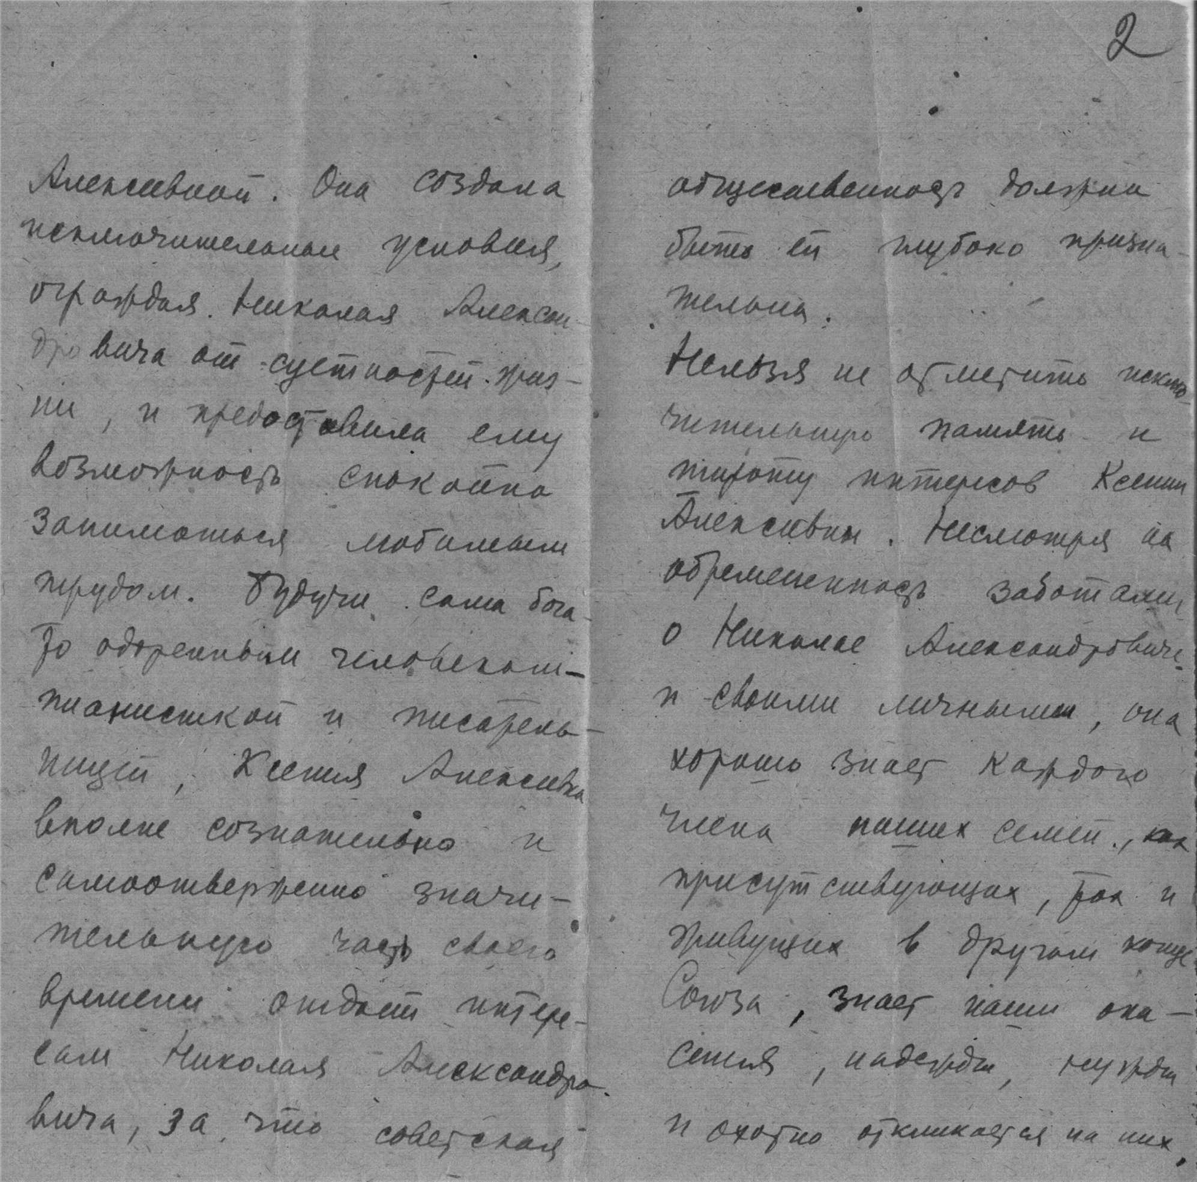 2
Алексеевной. Она создала
исключительные условия,
ограждая Николая Алексан-
дровича от суетностей жиз-
ни, и предоставила ему
возможность спокойно
заниматься любимым
трудом. Будучи сама бога-
то одаренным человеком –
пианисткой и писатель-
ницей, Ксения Алексеевна
вполне сознательно и
самоотверженно значи-
тельную часть своего
времени отдает интере-
сам Николая Александро-
вича, за что советская
общественность должна
быть ей глубоко призна-
тельна.
Нельзя не отметить исклю-
чительную память и
широту интересов Ксении
Алексеевны. Несмотря на
обремененность заботами
о Николае Александровиче
и своими личными, она
хорошо знает каждого
члена наших семей, как
присутствующих, так и
живущих в другом конце
Союза, знает наши опа-
сения, надежды, нужды
и охотно откликается на них.